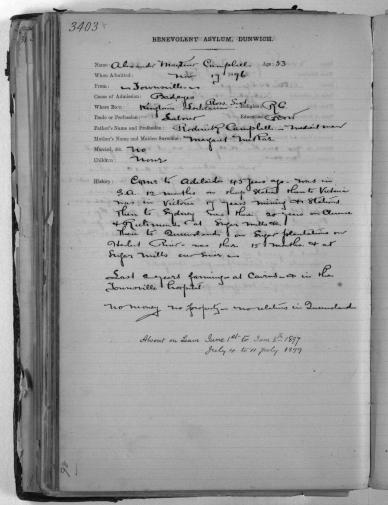 3403
BENEVOLENT ASYLUM, DUNWICH.
Name: Campbell Age: 53
When Admitted: Nov 17 96
From: Townsville
Cause of Admission:
Where Born: Ross Religion: RC
Trade or Profession: Labour Education:
Father's Name and Profession: Roderick Campbell
Mother's Name and Maiden Surname: Margaret
Married, &c. No
Children: None
History: Came to Adelaide 43 years ago. was in
S.A. 12 months on sheep station then to Victoria
was in Victoria 17 years mining & stations
Then to Sydney was there 20 years on Clarence
& Richmond at Sugar Mills &
Then to Queensland on Sugar plantations on
Herbert River was there 15 months & at
Sugar Mills ever since
Last 2 years farming at Cairns & in the
Townsville Hospital
no money no property no relatives in Queensland
Absent on Leave June 1st to June 8th 1897
July 4 to 11 July 1899